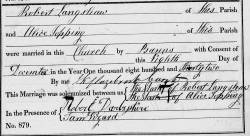 Robert Langshaw of this Parish
and Alice Topping of this Parish
were married in this Church by Banns with Consent of
this Eighth Day of
December in the Year One thousand eight hundred and
By me
This Marriage was solemnized between us The Mark of Robert Langshaw
The Mark of Alice Topping
In the Presence of Robert Derbyshire
No. 879.